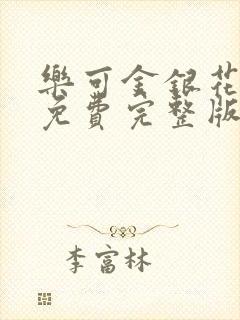 樂可金銀花
免費完整版
李富林